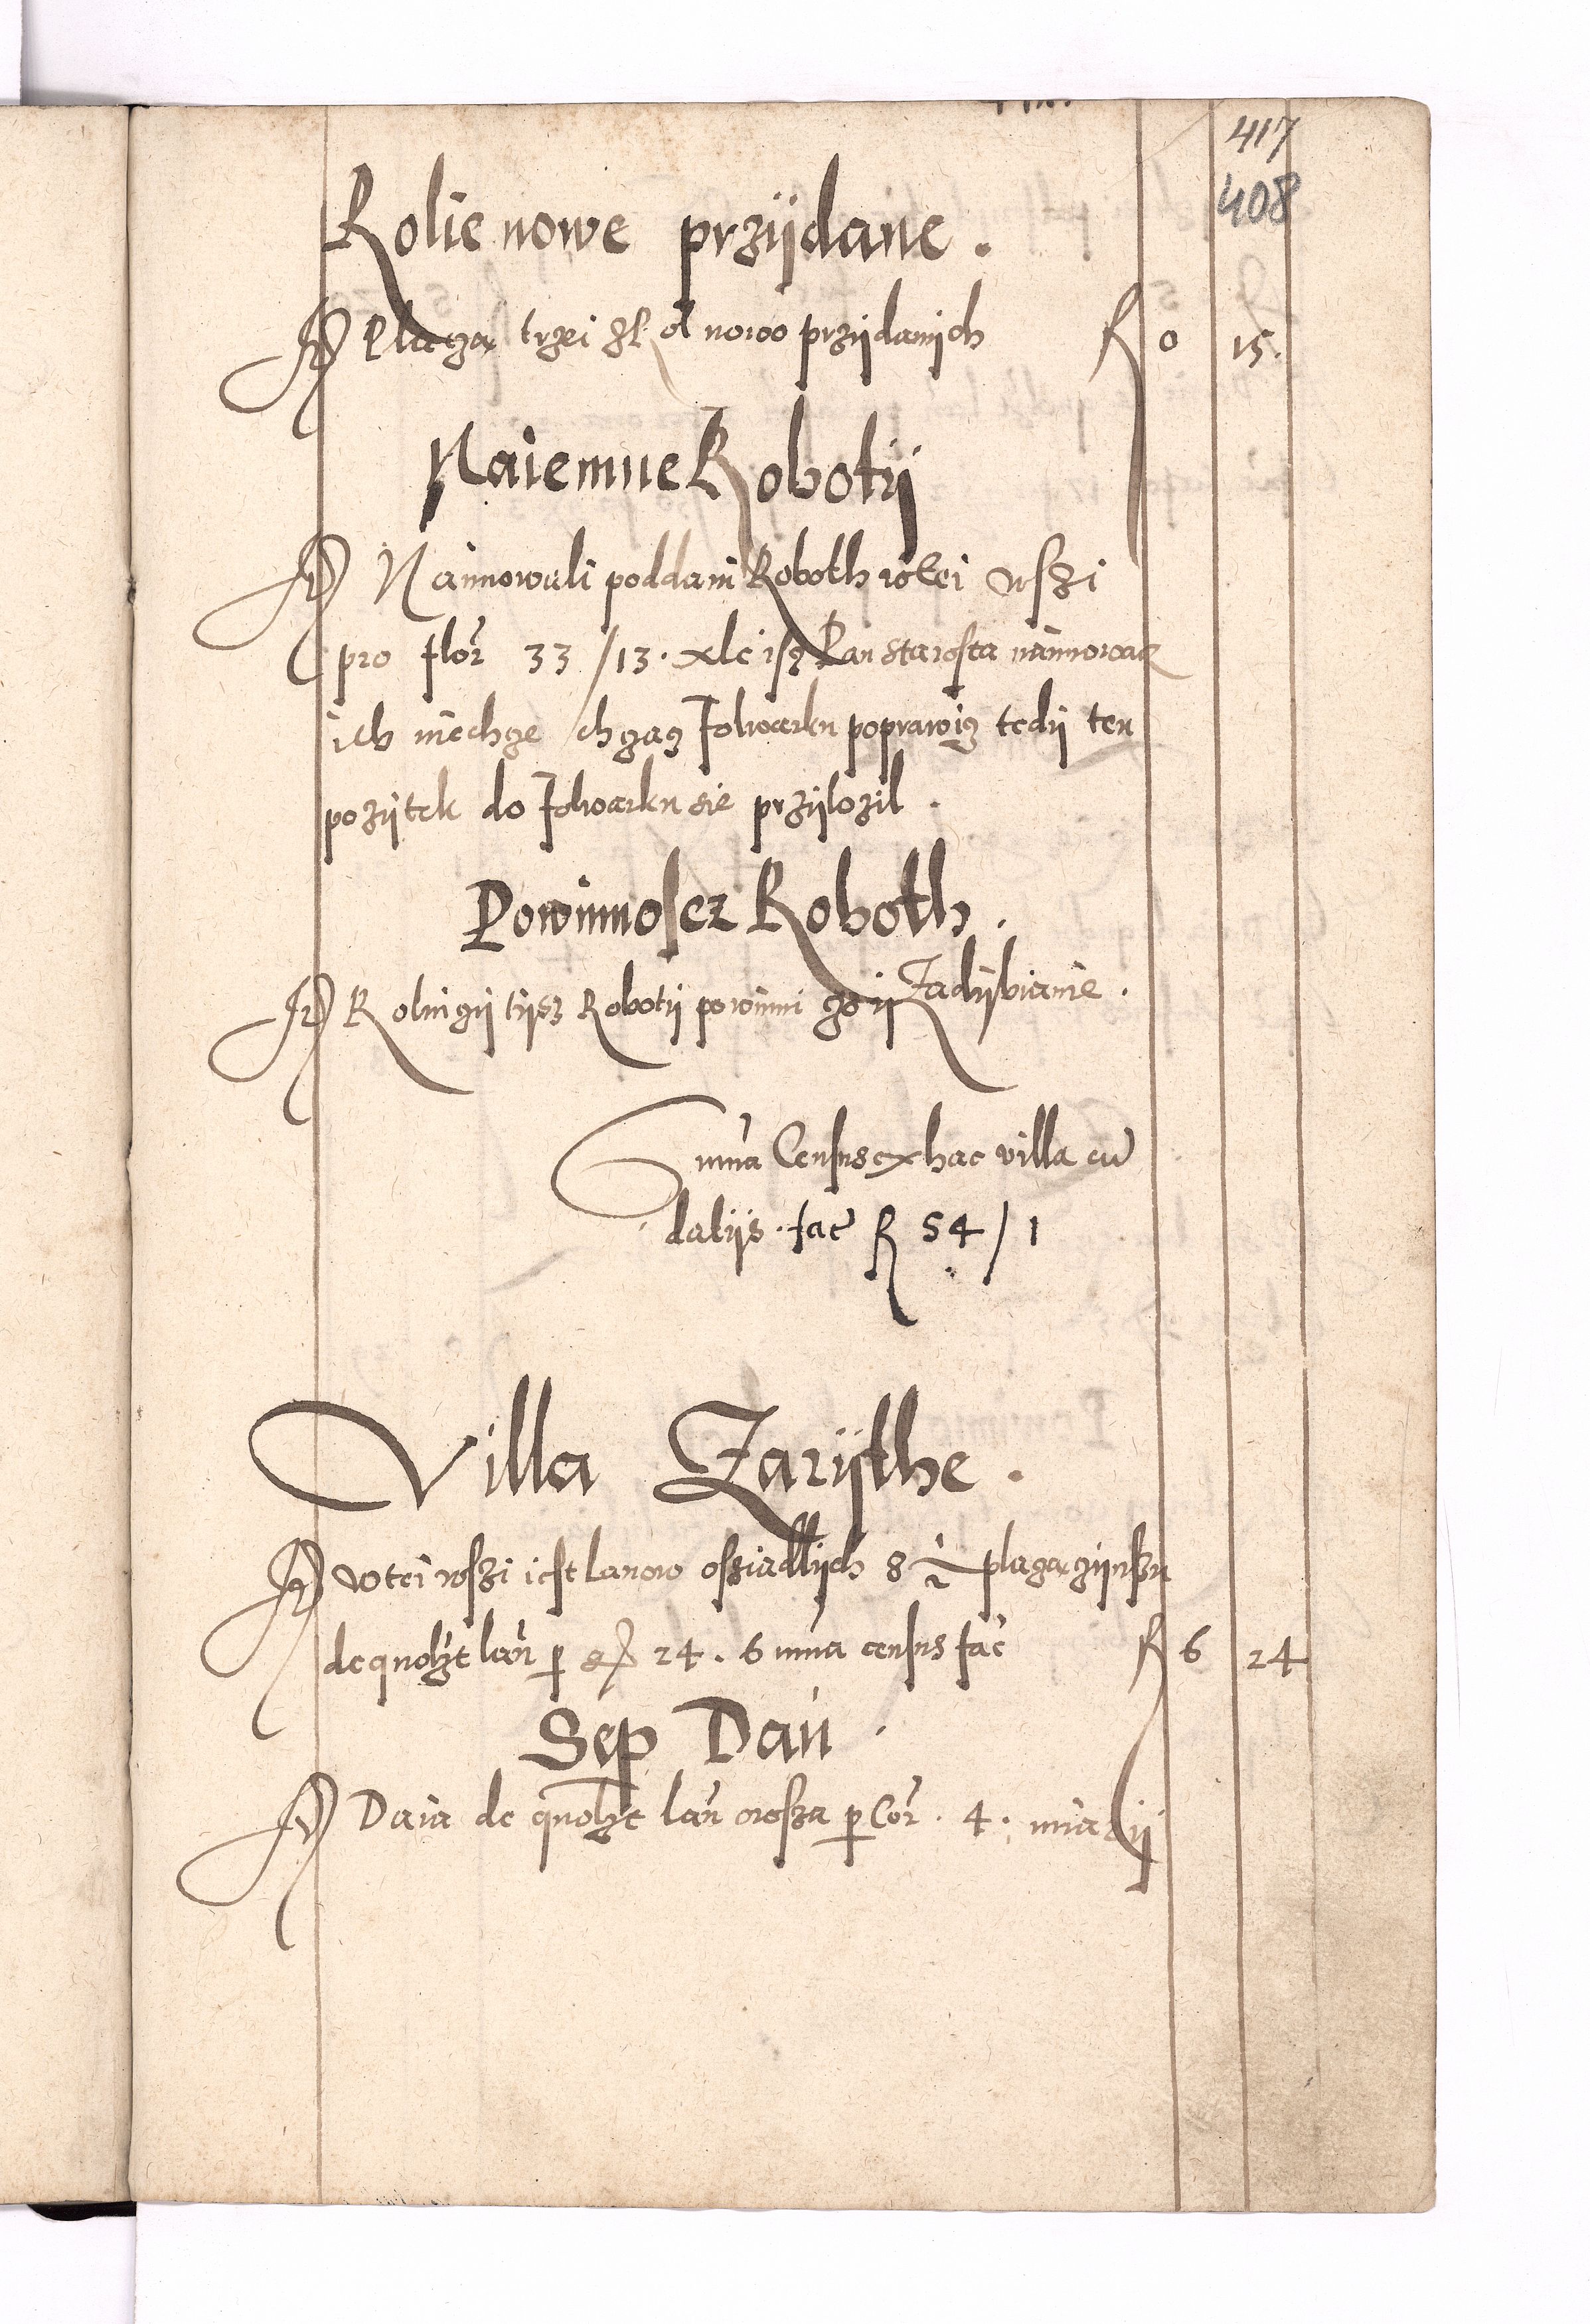 417
408
Rolie nowe przÿdane.
It Placza trzei z Rol nowo przÿdanÿch R 0 15.
Naiemne Robotÿ
It Naimowali poddani Roboth wtei wsszi
pro flor 33/13. Ale isz Pan Starosta naimowacz
ich niechze chczącz folwarku poprawicz tedÿ ten
pozÿtek do folwarku sie przÿlozil.
Powinnoscz Roboth.
It Rolniczÿ tijsz Robotÿ powinni czo ÿ Zadÿbianie.
Suma Census ex hac villa cu
daliis. fac R 54/1
Villa Zarijthe.
It wtei wsszi iest lanow ossiadlÿch 8 1/2 placza czÿnszu
de quolzt lan p gr 24. Suma census fac R 6 24
Sep Dani.
It Daia de quolzt lan owssa p Cor. 4. miarÿ